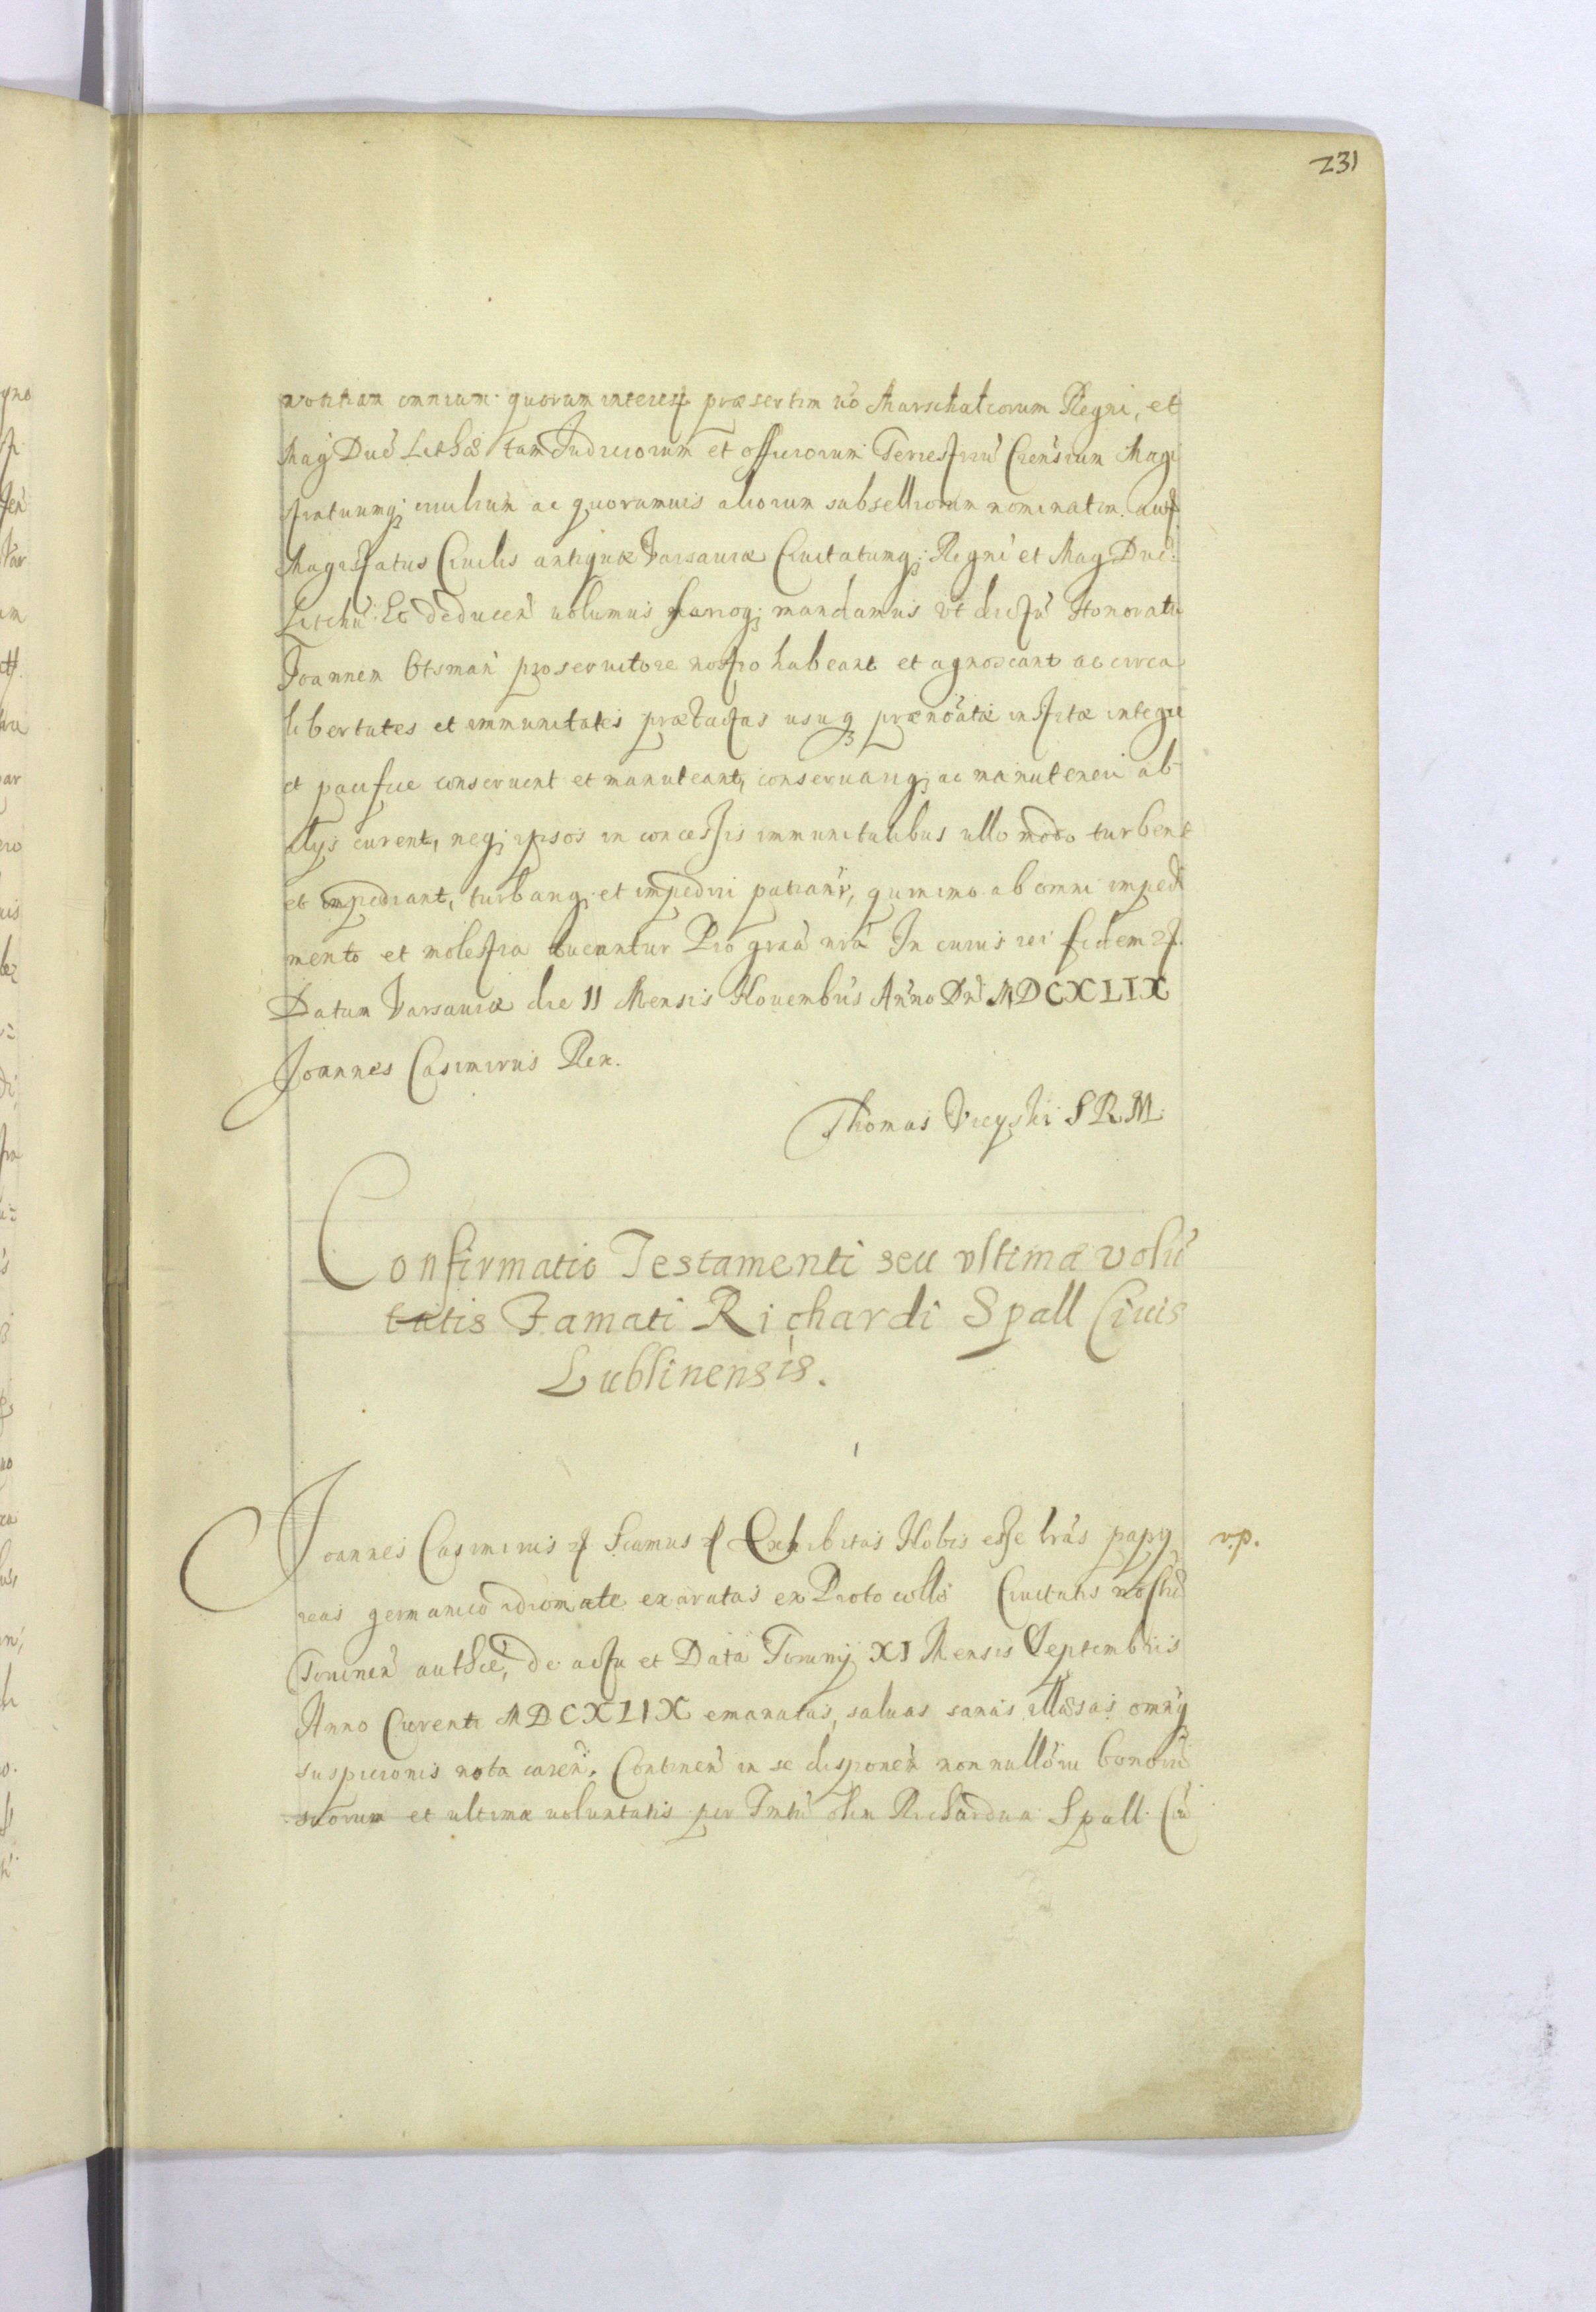 231
notitiam omnium quorum interest præsertim uo Marschalcorum Regni, et
Mag Duc Lithæ tam Judiciorum et officiorum Terrestriu Crensium Magi
stratuumq; ciuilium ac quorumuis aliorum subselliorum nominatim aut
Magistatus Ciuilis antiquæ Varsauiæ Ciuitatumq; Regni et Mag Duc
Lithu: Et deducen uolumus mandamus vt dictu Honoratu
Joannem Otsman pro seruitore nostro habeant et agnoscant ac circa
libertates et immunitates prætactas usuq prænoatæ institæ integre
et pacifice conseruent et manuteant, conseruariq; ac manuteneri ab
alijs curent, neq; ipsos in concessis immunitatibus ullo modo turbent
et impediant, turbariq; et impediri patianr, quinimo ab omni impedi
mento et molestia tueantur Pro graa nra In cuius rei fidem
Datum Varsauiæ die 11 Mensis Nouembris Anno Dni MDCXLIX
Joannes Casimirus Rex.
Thomas Vieyski S R M.
Confirmatio Testamenti seu vltimæ volu
tatis Famati Richardi Spall Ciuis
Lublinensis.
Joannes Casimirus Sicumus Exhibitas Nobis esse lras papy v.p.
reas germanico idiomate exaratas ex Protocollo Ciuitatis nostræ
Torunen authce, de actu et Data Torunij XI Mensis Septembris
Anno Curenti MDCXLIX emanatas, saluas sanas illæsas omniq
suspicionis nota caren. Continen in se disponen non nulloru bonoru
suorum et ultimæ uoluntatis per Fmtu olim Richardum Spall Ciu